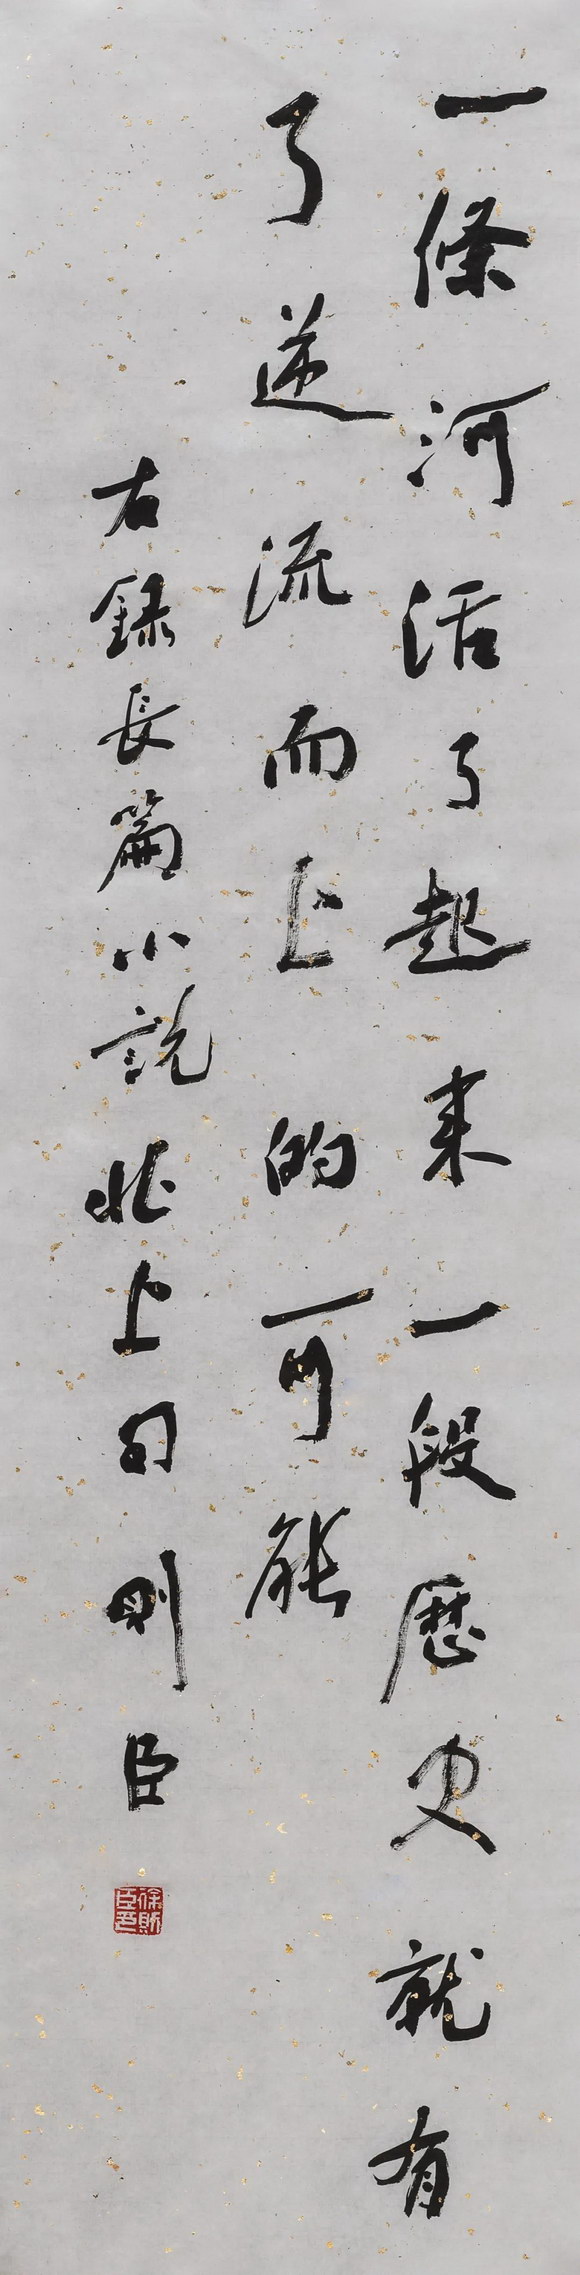 一條河活了起来一段歷史就有
了逆流而上的可能
右録長篇小説北上句則臣
徐則臣印